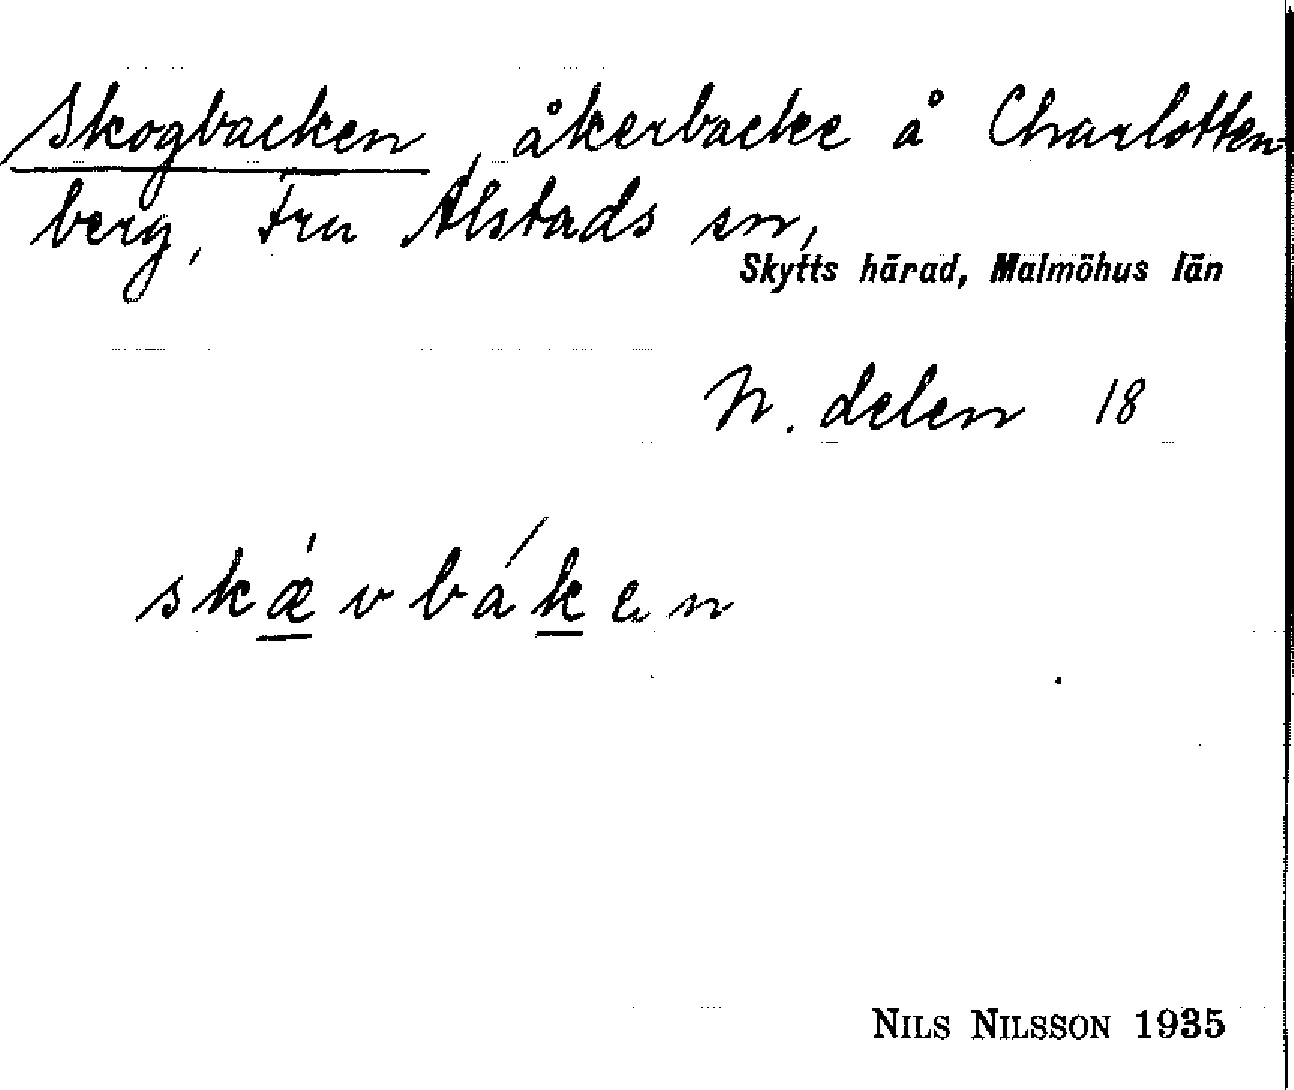 Skogbacken, åkerbacke å Charlotten-
berg, Fru Alstads sn,
Skytts härad, Malmöhus län
N. delen 18
skǽvbáken
NILS NILSSON 1935